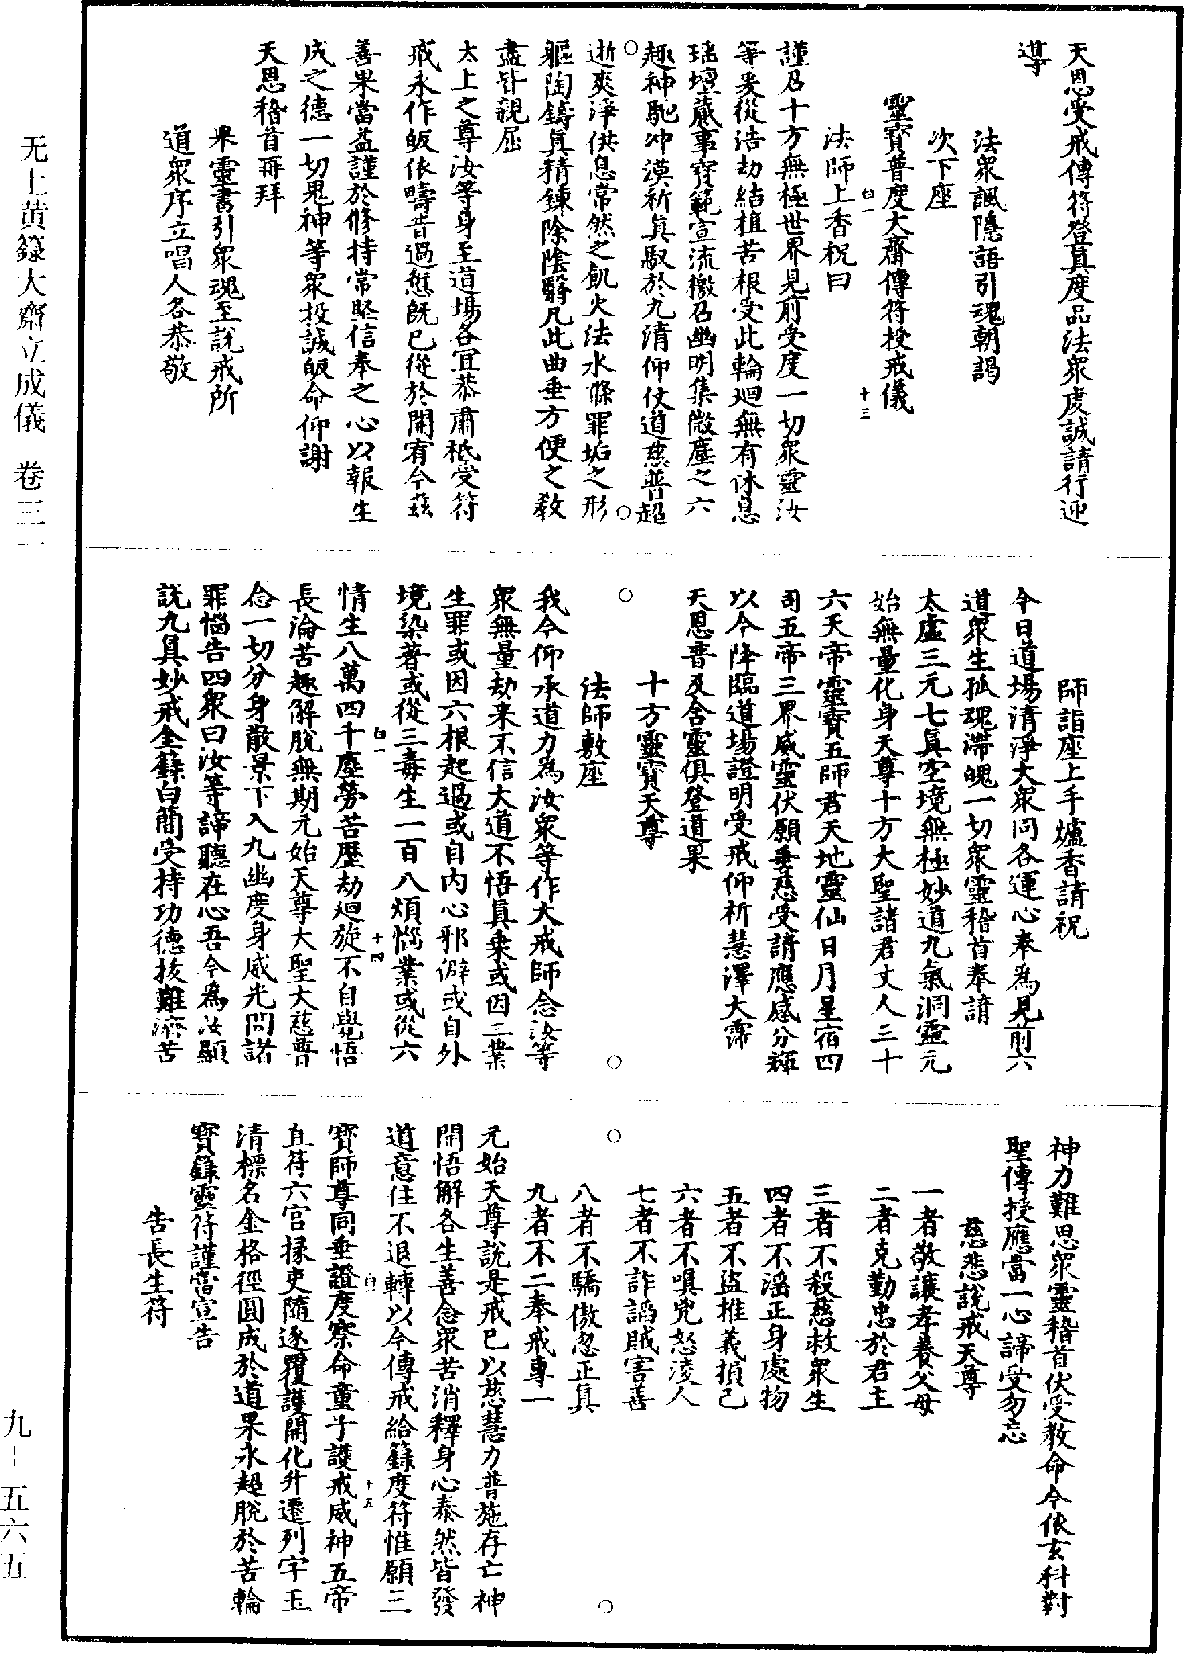 天恩受戒傳符登真度品法眾虔誠請行迎
導
法眾諷隱語引魂朝謁
次下座
靈寶普度大齋傳符授戒儀
法師上香祝曰
謹召十方無極世界見前受度一切眾靈汝
等爰從浩劫結植苦根受此輪迴無有休息
瑤壇蕆事寶範宣流徵召幽明集微塵之六
趣神馳沖漠祈真馭於九清仰仗道慈普超
逝爽淨供息常然之飢火法水滌罪垢之形
軀陶鑄真精鍊除陰翳凡此曲垂方便之教
盡皆親屈
太上之尊汝等身至道場各宜恭肅祇受符
戒永作皈依疇昔過愆既已從於開宥今茲
善果當益謹於修持常堅信奉之心以報生
成之德一切鬼神等眾投誠皈命仰謝
天恩稽首再拜
眾靈書引眾魂至說戒所
道眾序立唱人各恭敬
師詣座上手爐香請祝
今日道場清淨大眾同各運心奉為見前六
道眾生孤魂滯魄一切眾靈稽首奉請
太虛三元七真空境無極妙道九氣洞靈元
始無量化身天尊十方大聖諸君丈人三十
六天帝靈寶五師君天地靈仙日月星宿四
司五帝三界威靈伏願垂慈受請應感分輝
以今降臨道場證明受戒仰祈慧澤大霈
天恩普及含靈俱登道果
十方靈寶天尊
法師敷座
我今仰承道力為汝眾等作大戒師念汝等
眾無量劫來不信大道不悟真乘或因三業
生罪或因六根起過或自內心邪僻或自外
境染著或從三毒生一百八煩惱業或從六
情生八萬四千塵勞苦歷劫迴旋不自覺悟
長淪苦趣解脫無期元始天尊大聖大慈普
念一切分身散景下入九幽度身威光問諸
罪惱告四眾曰汝等諦聽在心吾今為汝顯
說九真妙戒金籙白簡受持功德拔難濟苦
神力難思眾靈稽首伏受教命今依玄科對
聖傳授應當一心諦受勿忘
慈悲說戒天尊
一者敬讓孝養父母
二者克勤忠於君主
三者不殺慈救眾生
四者不淫正身處物
五者不盜推義損己
六者不嗔兇怒凌人
七者不詐諂賊害善
八者不驕傲忽正真
九者不二奉戒專一
元始天尊說是戒已以慈慧力普施存亡神
開悟解各生善念眾苦消釋身心泰然皆發
道意住不退轉以今傳戒給籙度符惟願三
寶師尊同垂證度察命童子護戒威神五帝
直符六宮掾吏隨逐覆護開化升遷列字玉
清標名金格徑圓成於道果永超脫於苦輪
寶籙靈符謹當宣告
告長生符
无上黄籙大齋立成儀　卷三一
九－五六五